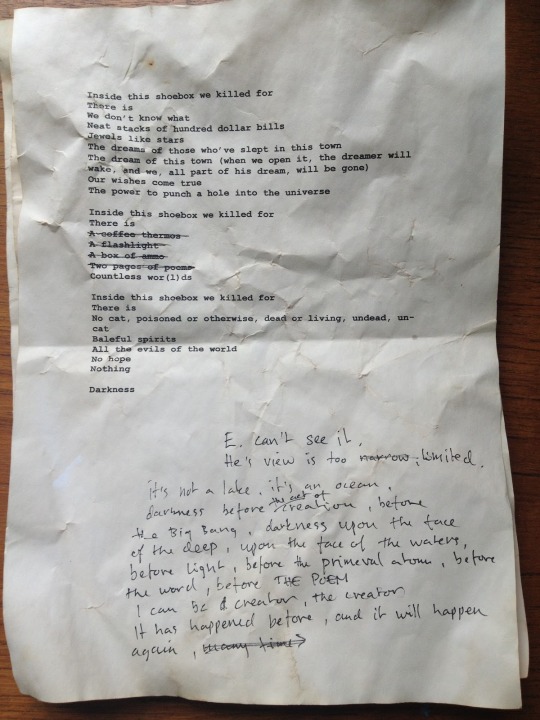 Inside this shoebox we killed for
There is
We don't know what
Neat stacks of hundred dollar bills
Jewels like stars
The dreams of those who've slept in this town
The dream of this town (when we open it, the dreamer will
wake, and we, all part of his dream, will be gone)
Our wishes come true
The power to punch a hole into the universe

Inside this shoebox we killed for
There is
A coffee thermos
A flashlight
A box of ammo
Two pages of poems
Countless wor(l)ds

Inside this shoebox we killed for
There is
No cat, poisoned or otherwise, dead or living, undead, un-
cat
Baleful spirits
All the evils of the world
No hope
Nothing

Darkness

E. can't see it.
He's view is too narrow, limited.
it's not a lake, it's an ocean.
darkness before the act of creation, before
the Big Bang, darkness upon the face
of the deep, upon the face of the waters,
before light, before the primeval atom, before
the word, before THE POEM
I can be a creator, the creator
It has happened before, and it will happen
again, many times